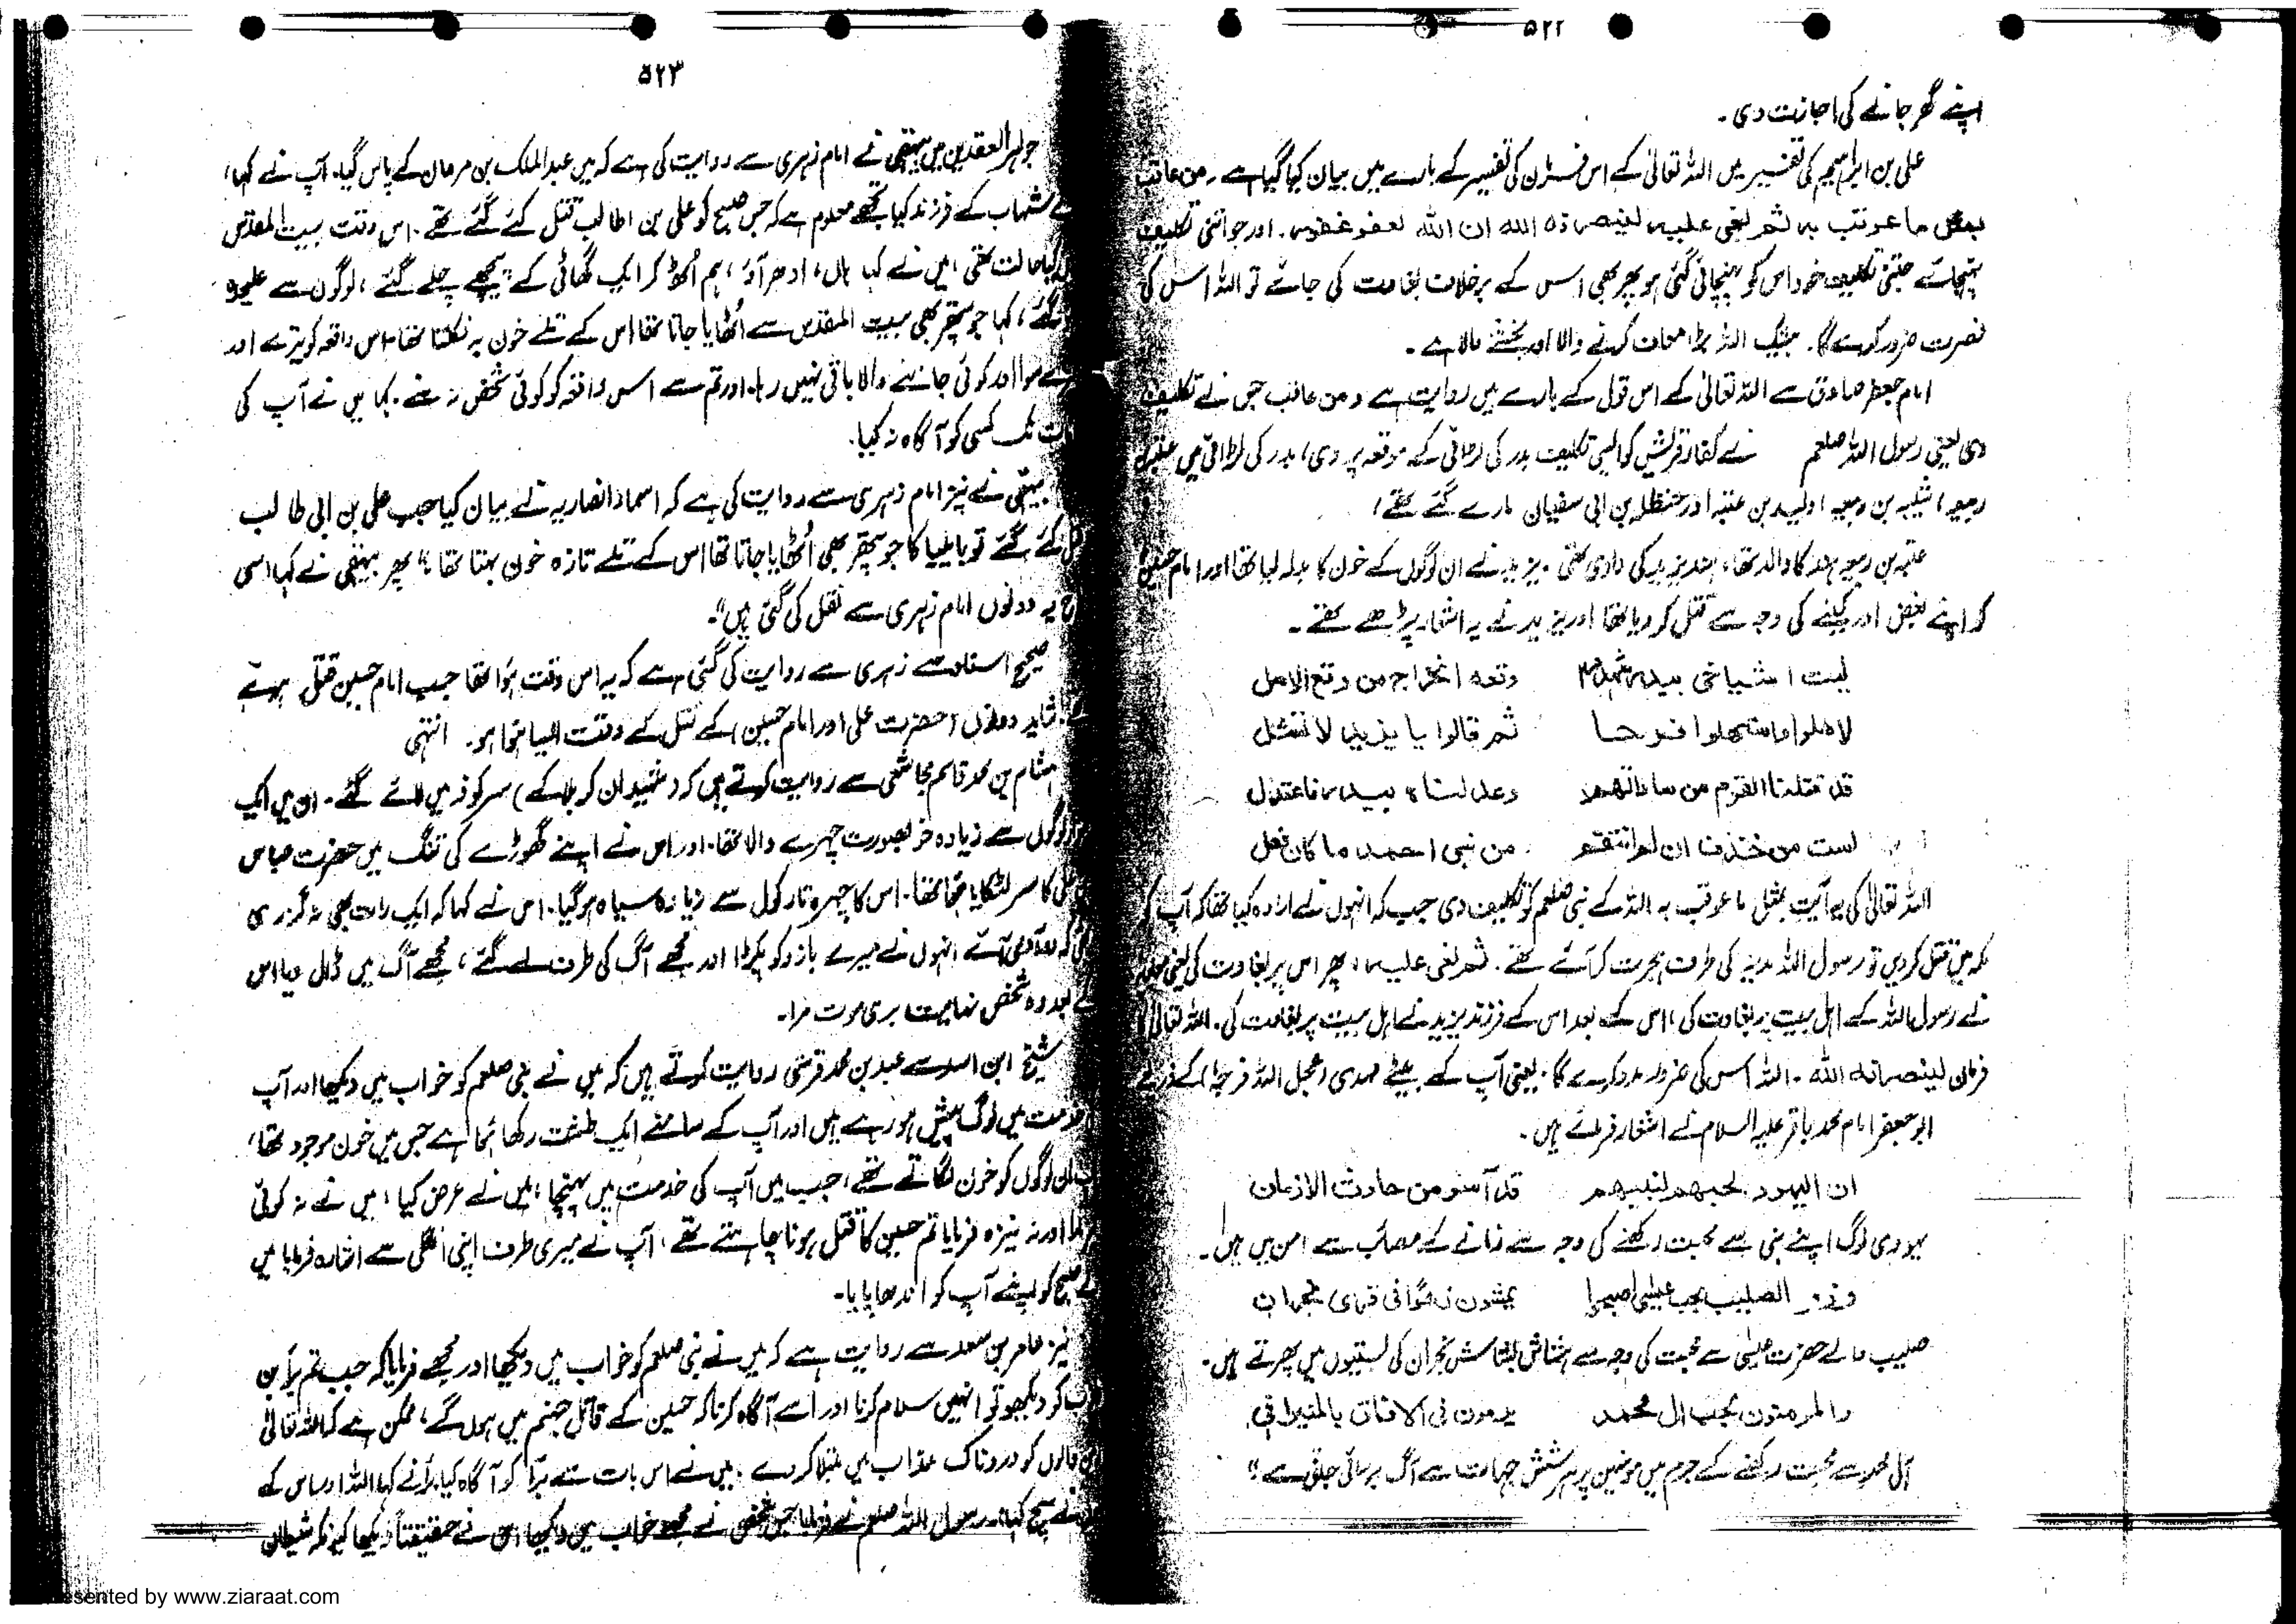 ۵۲۲
اپنے گھر جانے کی اجازت دی۔
علی بن ابراہیم کی تفسیر میں اللہ تعالیٰ کے اس فرمان کی تفسیر کے بارے میں بیان کیا گیا ہے ومن عاقب
بمثل ما عوقب به ثم بغی علیه لینصرنه الله ان الله لعفو غفور۔ اور جو اتنی تکلیف
پہنچائے جتنی تکلیف خود اس کو پہنچائی گئی ہو پھر بھی اس کے برخلاف بغاوت کی جائے تو اللہ اس کی
نصرت ضرور کرے گا۔ بیشک اللہ بڑا معاف کرنے والا اور بخشنے والا ہے۔
امام جعفر صادق سے اللہ تعالیٰ کے اس قول کے بارے میں روایت ہے ومن عاقب جس نے تکلیف
دی یعنی رسول اللہ صلعم نے کفار قریش کو ایسی تکلیف بدر کی لڑائی کے موقعہ پر دی، بدر کی لڑائی میں عتبہ بن
ربیعہ، شیبہ بن ربیعہ، ولید بن عتبہ اور حنظلہ بن ابی سفیان مارے گئے تھے،
عتبہ بن ربیعہ ہند کا والد تھا، ہند یزید کی دادی تھی۔ یزید نے ان لوگوں کے خون کا بدلہ لیا تھا اور امام حسین
کو اپنے بغض اور کینے کی وجہ سے قتل کر دیا تھا اور یزید نے یہ اشعار پڑھے تھے۔
لیت اشیاخی ببدر شهدوا وقعه الخزرج من وقع الاسل
لاهلوا واستهلوا فرحا ثم قالوا یا یزید لا تشل
قد قتلنا القرم من ساداتهم وعدلناه ببدر فاعتدل
لست من خندف ان لم انتقم من نبی احمد ما کان فعل
اللہ تعالیٰ کی یہ آیت بمثل ما عوقب به اللہ کے نبی صلعم کو تکلیف دی جب کہ انہوں نے ارادہ کیا تھا کہ آپ کو
مکہ میں قتل کر دیں تو رسول اللہ مدینہ کی طرف ہجرت کر آئے تھے۔ ثم بغی علیه، پھر اس پر بغاوت کی یعنی معاویہ
نے رسول اللہ کے اہل بیت پر بغاوت کی، اس کے بعد اس کے فرزند یزید نے اہل بیت پر بغاوت کی۔ اللہ تعالیٰ کا
فرمان لینصرنه الله۔ اللہ اس کی ضرور مدد کرے گا۔ یعنی آپ کے بیٹے مہدی (عجل اللہ فرجہ) کے ذریعے
ابو جعفر امام محمد باقر علیہ السلام نے اشعار فرمائے ہیں۔
ان الیهود لحبهم لنبیهم قد آمنو من حادث الازمان
یہودی لوگ اپنے نبی سے محبت رکھنے کی وجہ سے زمانے کے مصائب سے امن میں ہیں۔
الصلیب بحب عیسیٰ اصبحوا یمشون زهوًا فی قری نجران
صلیب والے حضرت عیسیٰ سے محبت کی وجہ سے ہشاش بشاش نجران کی بستیوں میں پھرتے ہیں۔
والمومنون بحب ال محمد یرمون فی الافاق بالنیران
آل محمد سے محبت رکھنے کے جرم میں مومنین پر ہر شش جہات سے آگ برسائی جاتی ہے“
۵۲۳
جواہر العقدین میں بیہقی نے امام زہری سے روایت کی ہے کہ میں عبد الملک بن مروان کے پاس گیا۔ آپ نے کہا،
شہاب کے فرزند کیا تجھے معلوم ہے کہ جس صبح کو علی بن اطالب قتل کئے گئے تھے۔ اس وقت بیت المقدس
کیا حالت تھی، میں نے کہا ہاں، ادھر آؤ، ہم اٹھ کر ایک گھاٹی کے پیچھے چلے گئے، لوگوں سے علیحدہ
گئے، کہا جو پتھر بھی بیت المقدس سے اٹھایا جاتا تھا اس کے تلے خون ہی نکلتا تھا اس واقعہ کو تیرے اور
سوا اور کوئی جاننے والا باقی نہیں رہا۔ اور تم سے اس واقعہ کو کوئی شخص نہ سنے۔ کہا میں نے آپ کی
تک کسی کو آگاہ نہ کیا۔
بیہقی نے نیز امام زہری سے روایت کی ہے کہ اسماء انصاریہ نے بیان کیا جب علی بن ابی طالب
کئے گئے تو بایلیا کا جو پتھر بھی اٹھایا جاتا تھا اس کے تلے تازہ خون بہتا تھا“ پھر بیہقی نے کہا اسی
یہ دونوں امام زہری سے نقل کی گئی ہیں“۔
صحیح اسناد سے زہری سے روایت کی گئی ہے کہ یہ اس وقت ہوا تھا جب امام حسین قتل ہوئے
شاید دونوں (حضرت علی اور امام حسین) کے قتل کے وقت ایسا ہوا ہو۔ انتہی
ہشام بن محمد قاسم مجاشعی سے روایت کرتے ہیں کہ (شہیدان کربلا کے) سر کوفہ میں لائے گئے۔ ان میں ایک
لوگوں سے زیادہ خوبصورت چہرے والا تھا۔ اور اس نے اپنے گھوڑے کی تنگ میں حضرت عباس
کا سر لٹکایا ہوا تھا۔ اس کا چہرہ تارکول سے زیادہ سیاہ ہو گیا۔ اس نے کہا کہ ایک رات بھی نہ گزری
کہ دو آدمی آئے انہوں نے میرے بازو کو پکڑا اور مجھے آگ کی طرف لے گئے، مجھے آگ میں ڈال دیا اس
بعد وہ شخص نہایت بری موت مرا۔
شیخ ابن اسد سے عبد بن محمد قرشی روایت کرتے ہیں کہ میں نے نبی صلعم کو خواب میں دیکھا اور آپ
خدمت میں لوگ پیش ہو رہے ہیں اور آپ کے سامنے ایک طشت رکھا ہوا ہے جس میں خون موجود تھا،
ان لوگوں کو خون لگاتے تھے، جب میں آپ کی خدمت میں پہنچا، میں نے عرض کیا، میں نے نہ کوئی
اور نہ نیزہ فرمایا تم حسین کا قتل ہونا چاہتے تھے، آپ نے میری طرف اپنی انگلی سے اشارہ فرمایا میں
صبح کو اپنے آپ کو اندھا پایا۔
نیز عامر بن سعد سے روایت ہے کہ میں نے نبی صلعم کو خواب میں دیکھا اور مجھے فرمایا کہ جب تم براء بن
کو دیکھو تو انہیں سلام کرنا اور اسے آگاہ کرنا کہ حسین کے قاتل جہنم میں ہوں گے، ممکن ہے کہ اللہ تعالیٰ
والوں کو دردناک عذاب میں مبتلا کر دے۔ میں نے اس بات سے براء کو آگاہ کیا۔ براء نے کہا اللہ اور اس کے
نے سچ کہا۔ رسول اللہ صلعم نے فرمایا جس شخص نے مجھے خواب میں دیکھا اس نے حقیقتاً دیکھا کیونکہ شیطان
Presented by www.ziaraat.com